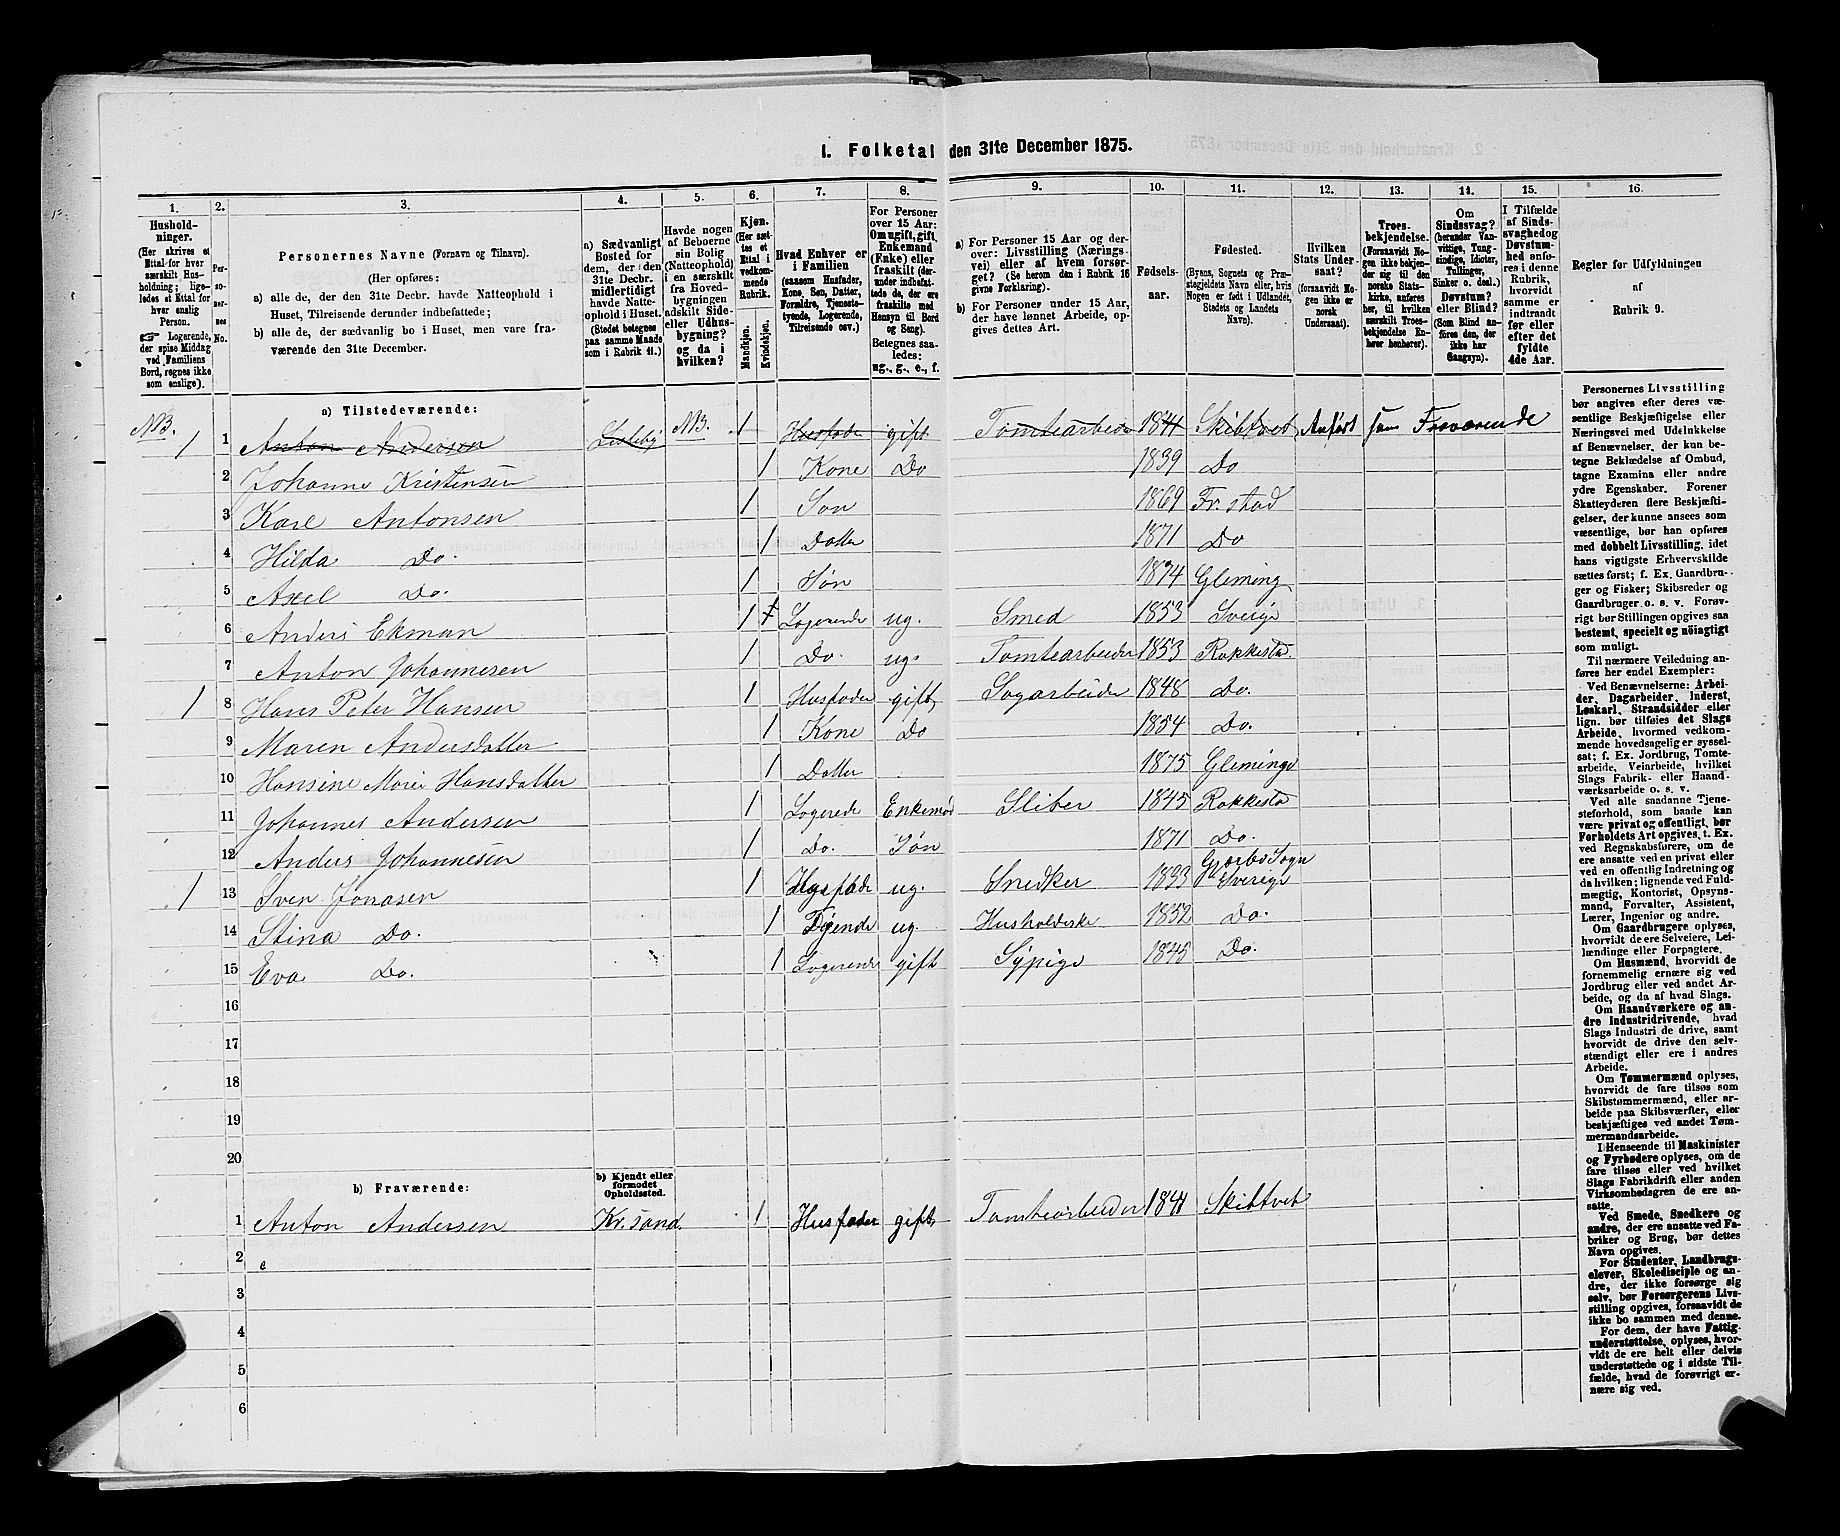 I. Folketal den 31te December 1875.
1. 2. 3. 4. 5. 6. 7. 8. 9. 10. 11. 12. 13. 14. 15. 16.
Hushold-
ninger.
(Her skrives et
Ettal for hver
særskilt Hus-
holdning; lige-
ledes et Ettal for
hver enslig
Person.
☞ Logerende,
der spise Middag
ved Familiens
Bord, regnes ikke
som enslige).
Per-
so-
ner-
nes
No.
Personernes Navne (Fornavn og Tilnavn).
(Her opføres:
a) alle de, der den 31te Decbr. havde Natteophold i
Huset, Tilreisende derunder indbefattede;
b) alle de, der sædvanlig bo i Huset, men vare fra-
værende den 31te December.
a) Sædvanligt
Bosted for
dem, der den
31te Decbr.
midlertidigt
havde Natte-
ophold i Huset.
(Stedet betegnes
paa samme Maade
som i Rubrik 11.)
Havde nogen
af Beboerne
sin Bolig
(Natteophold)
i en særskilt
fra Hoved-
bygningen
adskilt Side-
eller Udhus-
bygning?
og da i
hvilken?
Kjøn.
(Her sæt-
tes et
Ettal i
vedkom-
mende
Rubrik.
Mandkjøn.
Kvindekjøn.
Hvad Enhver er
i Familien
(saasom Husfader,
Kone, Søn, Datter,
Forældre, Tjeneste-
tyende, Logerende,
Tilreisende osv.)
For Personer
over 15 Aar:
Om ugift, gift,
Enkemand
(Enke) eller
fraskilt (der-
under indbefat-
tede de, der ere
fraskilte med
Hensyn til Bord
og Seng).
Betegnes saa-
ledes:
ug., g., e., f.
a) For Personer 15 Aar og der-
over: Livsstilling (Nærings-
vei) eller af hvem forsør-
get? (Se herom den i Rubrik 16
givne Forklaring).
b) For Personer under 15 Aar,
der have lønnet Arbeide, op-
gives dettes Art.
Fødsels-
aar.
Fødested.
(Byens, Sognets og Præ-
stegjeldets Navn eller, hvis
Nogen er født i Udlandet,
Stedets og Landets
Navn).
Hvilken
Stats Under-
saat?
(forsaavidt No-
gen ikke er
norsk
Undersaat).
Troes-
bekjendelse.
(Forsaavidt No-
gen ikke bekjen-
der sig til den
norske Stats-
kirke, anføres
her, til hvilken
særskilt Troes-
bekjendelse En-
hver henhører).
Om
Sindssvag?
(herunder Van-
vittige, Tung-
sindige, Idioter,
Tullinger,
Sinker o. desl.)
Døvstum?
eller Blind?
(Som Blind an-
føres den, der
ikke har
Gangsyn).
I Tilfælde
af Sinds-
svaghed og
Døvstum-
hed anfø-
res i denne
Rubrik,
hvorvidt
samme er
indtraadt
før eller
efter det
fyldte
4de Aar.
Regler for Udfyldningen
af
Rubrik 9.
a) Tilstedeværende:
NB. 1 1 Anton Andersen Lisleby NB. 1 Husfader gift Tomtearbeider 1841 Skibtvet Anført som Fraværende
2 Johanne Kristensen 1 Kone Do 1839 Do
3 Karl Antonsen 1 Søn 1869 Fr. stad
4 Hilda Do. 1 Datter 1871 Do
5 Axel Do. 1 Søn 1874 Gleming
6 Anders Ekman 1 Logerende ug. Smed 1853 Sverige
7 Anton Johannesen 1 Do. ug. Tomtearbeider 1853 Rakkestad
1 8 Hans Peter Hansen 1 Husfader gift Sagarbeider 1848 Do.
9 Maren Andersdatter 1 Kone Do 1854 Do.
10 Hansine Marie Hansdatter 1 Datter 1875 Gleminge
11 Johannes Andersen 1 Logerede Enkemd Sliber 1845 Rakkesta
12 Anders Johannesen 1 Do. Søn 1871 Do.
1 13 Sven Jonasen 1 Husfade ug. Snedker 1833 Sogn Sverige
14 Stina Do. 1 Tjende ug. Husholdeske 1852 Do.
15 Eva Do. 1 Logerende gift Sypige 1845 Do.
16
17
18
19
20
b) Fraværende:
b) Kjendt eller
formodet
Opholdssted.
1 Anton Andersen Kr. sand 1 Husfader gift Tomtearbeider 1841 Skibtvet
2
3
4
5
6
Personernes Livsstilling
bør angives efter deres væ-
sentlige Beskjæftigelse eller
Næringsvei med Udelukkelse
af Benævnelser, der kun be-
tegne Beklædelse af Ombud,
tagne Examina eller andre
ydre Egenskaber. Forener
Skatteyderen flere Beskjæfti-
gelser, der kunne ansees som
væsentlige, bør han opføres
med dobbelt Livsstilling, idet
hans vigtigste Erhvervskilde
sættes først; f. Ex. Gaardbru-
ger og Fisker; Skibsreder og
Gaardbruger o. s. v. Forøv-
rigt bør Stillingen opgives saa
bestemt, specielt og nøiagtigt
som muligt.
Til nærmere Veiledning an-
føres her endel Exempler:
Ved Benævnelserne: Arbei-
der, Dagarbeider, Inderst,
Løskarl, Strandsidder eller
lign. bør tilføies det Slags
Arbeide, hvormed vedkom-
mende hovedsagelig er syssel-
sat; f. Ex. Jordbrug, Tomte-
arbeide, Veiarbeide, hvilket
Slags Fabrik- eller Haand-
værksarbeide o. s. v.
Ved alle saadanne Tjene-
steforhold, som baade kan
være privat og offentligt, bør
Forholdets Art opgives, t. Ex.
ved Regnskabsførere, om de
ere ansatte ved en privat eller
en offentlig Indretning og
da hvilken; lignende ved Fuld-
mægtig, Kontorist, Opsyns-
mand, Forvalter, Assistent,
Lærer, Ingeniør og andre.
Om Gaardbrugere oplyses,
hvorvidt de ere Selveiere, Lei-
lændinge eller Forpagtere.
Om Husmænd, hvorvidt de
fornemmelig ernære sig ved
Jordbrug eller ved andet Ar-
beide, og da af hvad Slags.
Om Haandværkere og an-
dre Industridrivende, hvad
Slags Industri de drive, samt
hvorvidt de drive den selv-
stændigt eller ere i andres
Arbeide.
Om Tømmermænd oplyses,
hvorvidt de fare tilsøs som
Skibstømmermænd, eller ar-
beide paa Skibsværfter, eller
beskjæftiges ved andet Tøm-
mermandsarbeide.
I Henseende til Maskinister
og Fyrbødere oplyses, om de
fare tilsøs eller ved hvilket
Slags Fabrikdrift eller anden
Virksomhedsgren de ere an-
satte.
Ved Smede, Snedkere og
andre, der ere ansatte ved Fa-
briker og Brug, bør dettes
Navn opgives.
For Studenter, Landbrugs-
elever, Skoledisciple og an-
dre, der ikke forsørge sig
selv, bør Forsørgerens Livs-
stilling opgives, forsaavidt de
ikke bo sammen med denne.
For dem, der have Fattig-
understøttelse, oplyses, hvor-
vidt de ere helt eller delvis
understøttede og i sidste Til-
fælde, hvad de forøvrigt er-
nære sig ved.